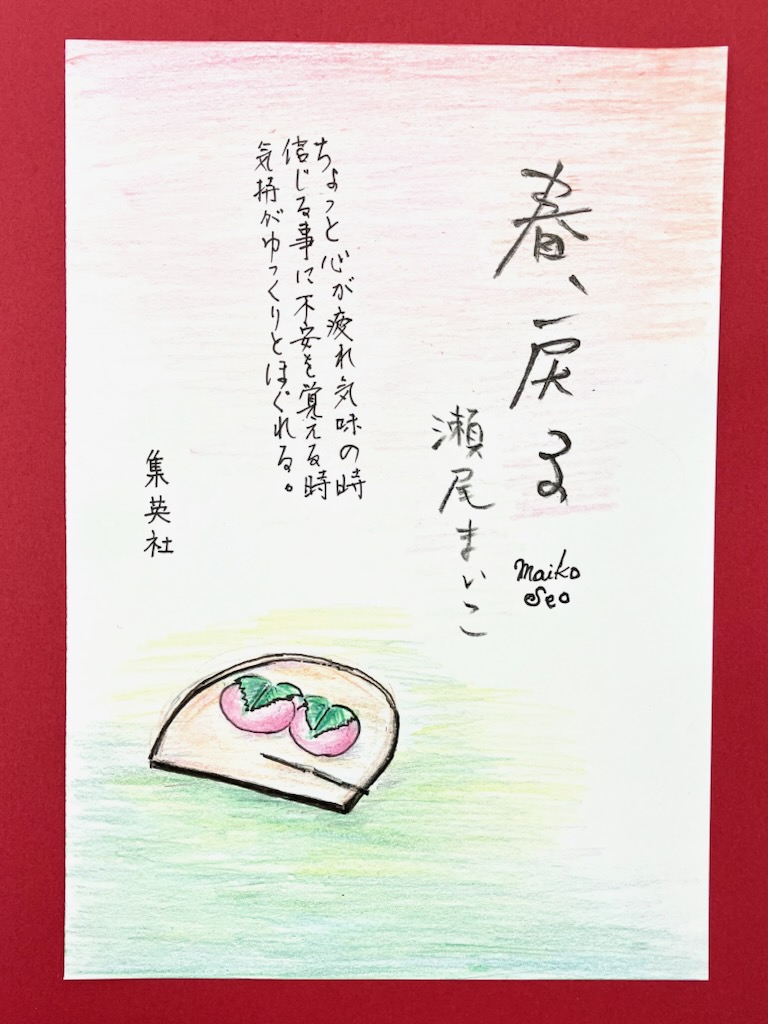 春、戻る
瀬尾まいこ
Maiko
Seo
ちょっと心が疲れ気味の時
信じる事に不安を覚える時
気持がゆっくりとほぐれる。
集英社